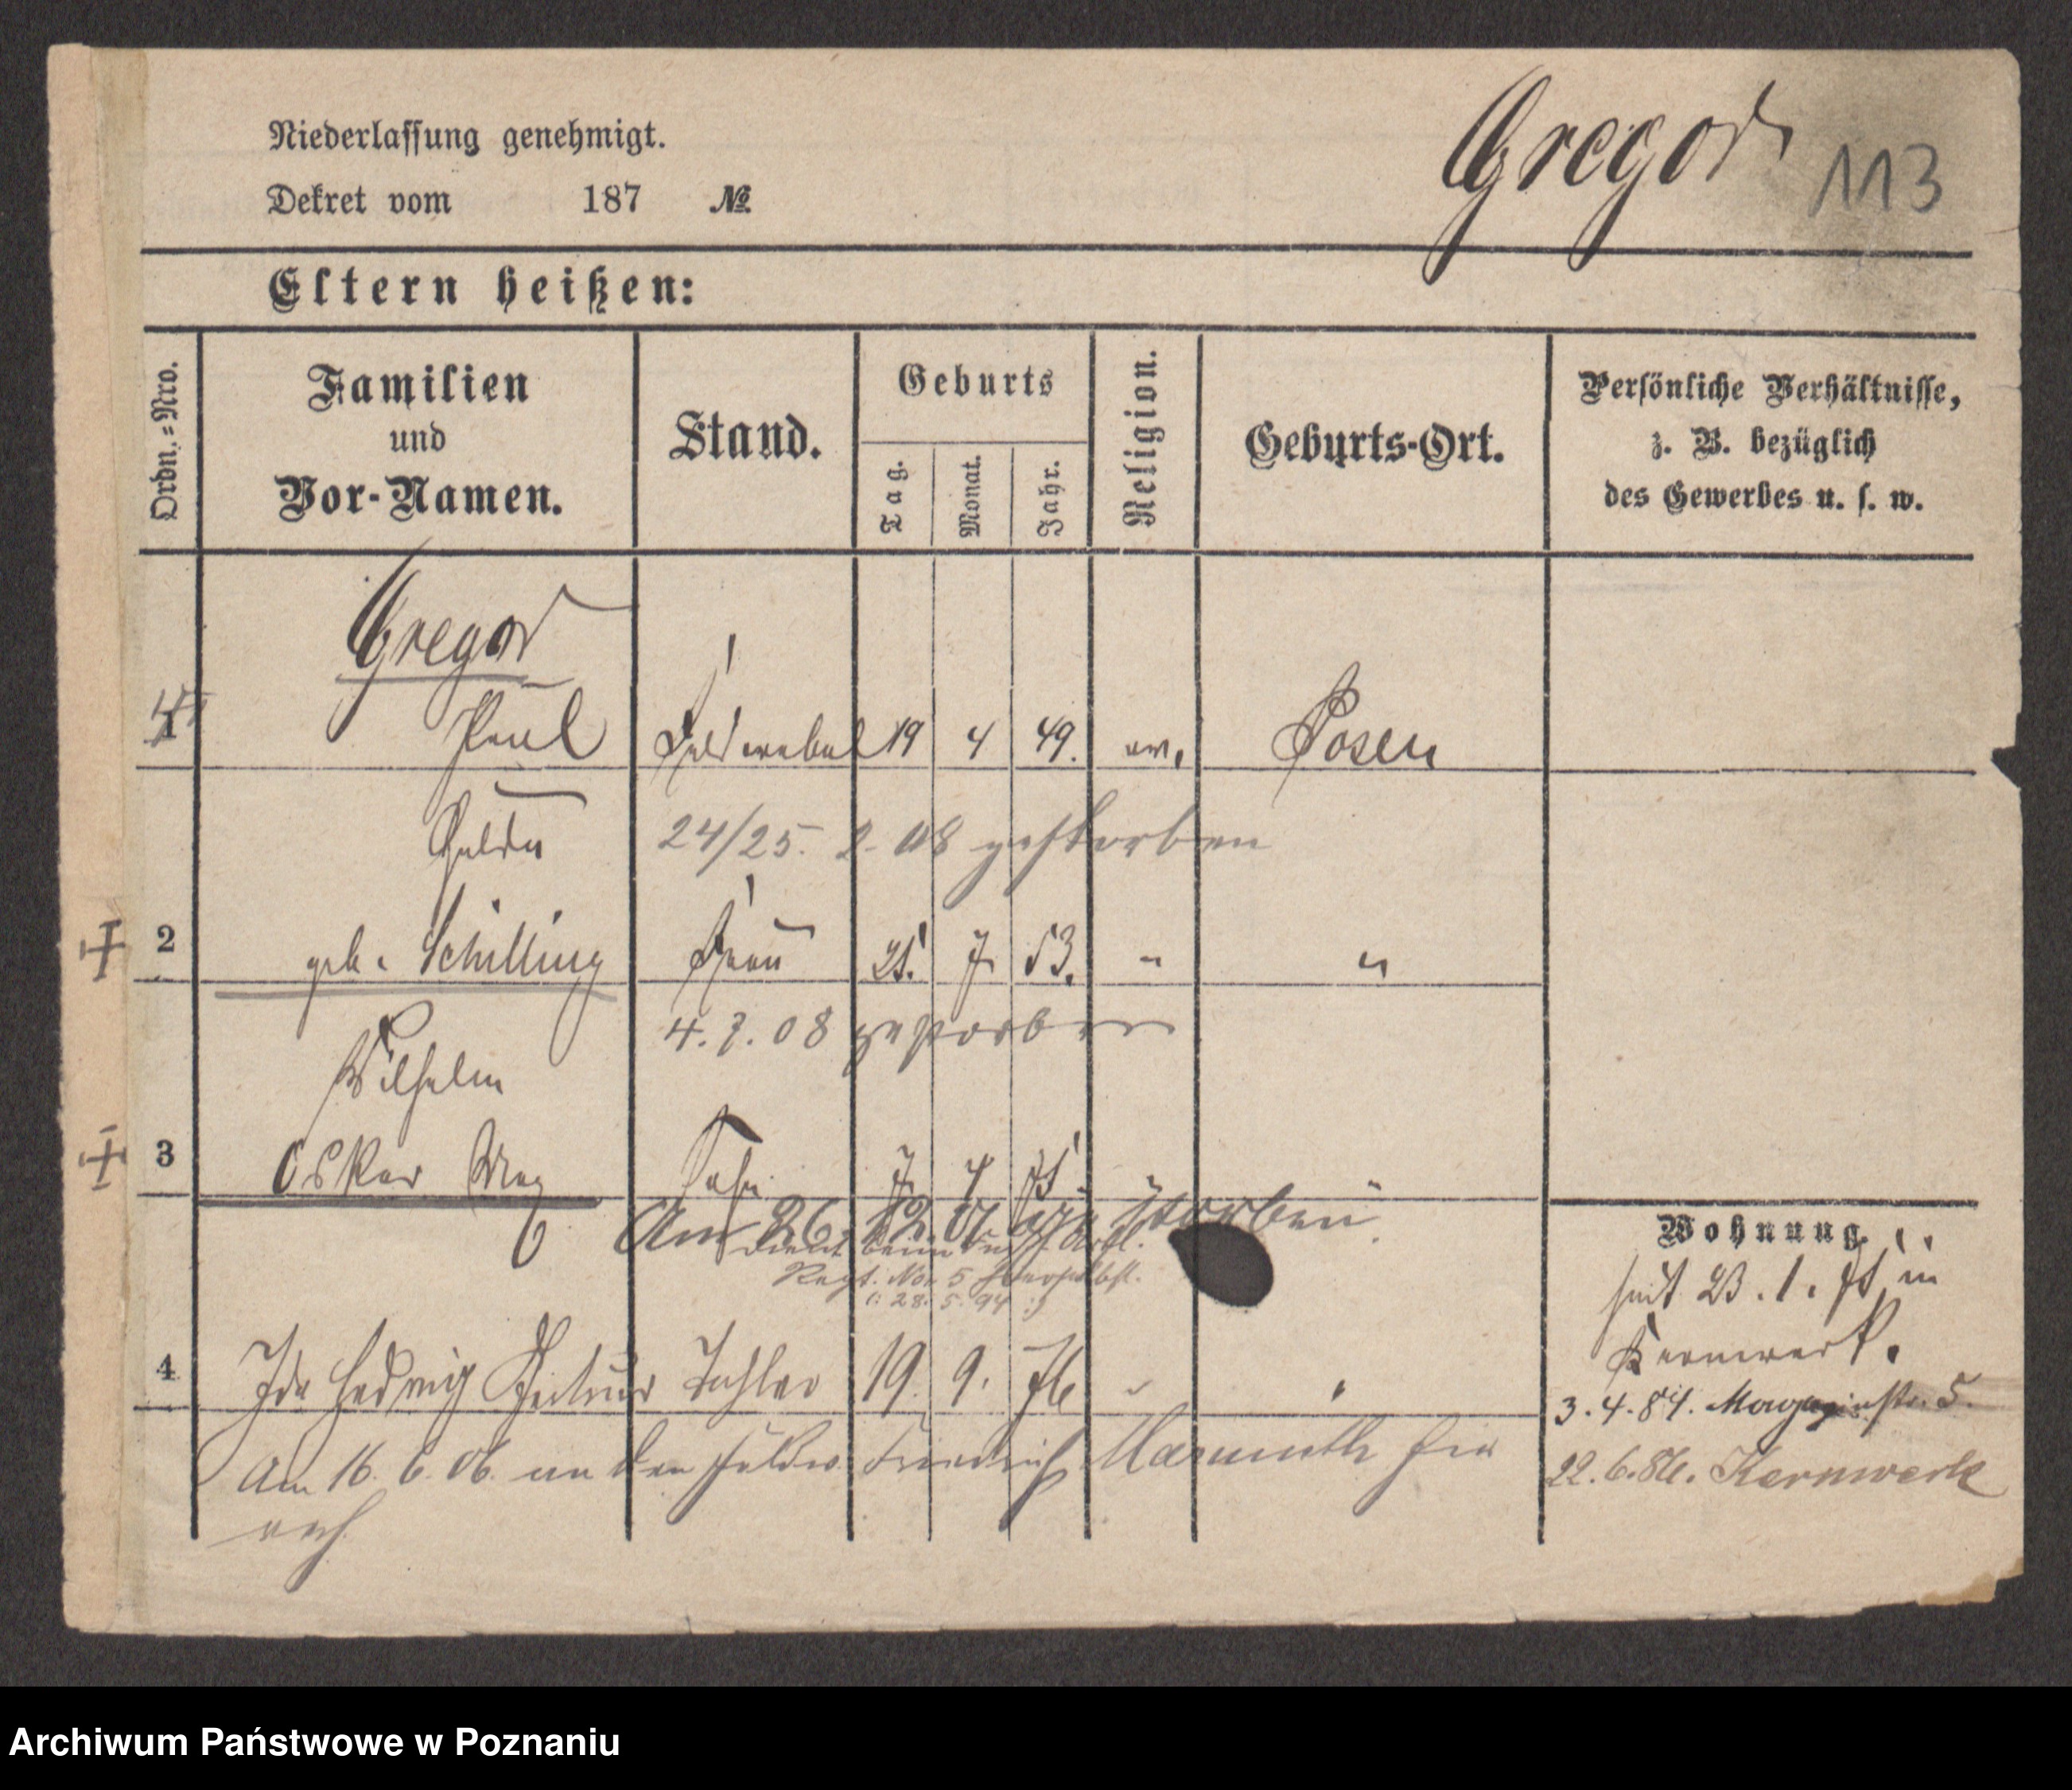 Niederlassung genehmigt.
Dekret vom 187 №
Gregor
113
Eltern heißen:
Ordn.-Nro.
Familien
und
Vor-Namen.
Stand.
Geburts
Tag.
Monat.
Jahr.
Religion.
Geburts-Ort.
Persönliche Verhältnisse,
z. B. bezüglich
des Gewerbes u. s. w.
Gregor
1 Paul Feldwebel 19 4 49. ev. Posen
24/25. 2. 08 gestorben
2 geb. Schilling Frau 25. 7. 53. " "
4. 7. 08 gestorben
Wilhelm
3 Oskar Max Sohn 7 4 75 " "
Am 26. 12 gestorben
dient beim Fuß Artl.
Regt. No. 5
(: 28. 5. 94 :)
4 Ida Hedwig Tochter 19. 9. 76 " "
Am 16. 6. 06. an den Friedrich Marmuth hier
verh.
Wohnung.
seit 23. 1. 75 in
Kernwerk.
3. 4. 84. Magazinstr. 5.
22. 6. 86. Kernwerk
Archiwum Państwowe w Poznaniu